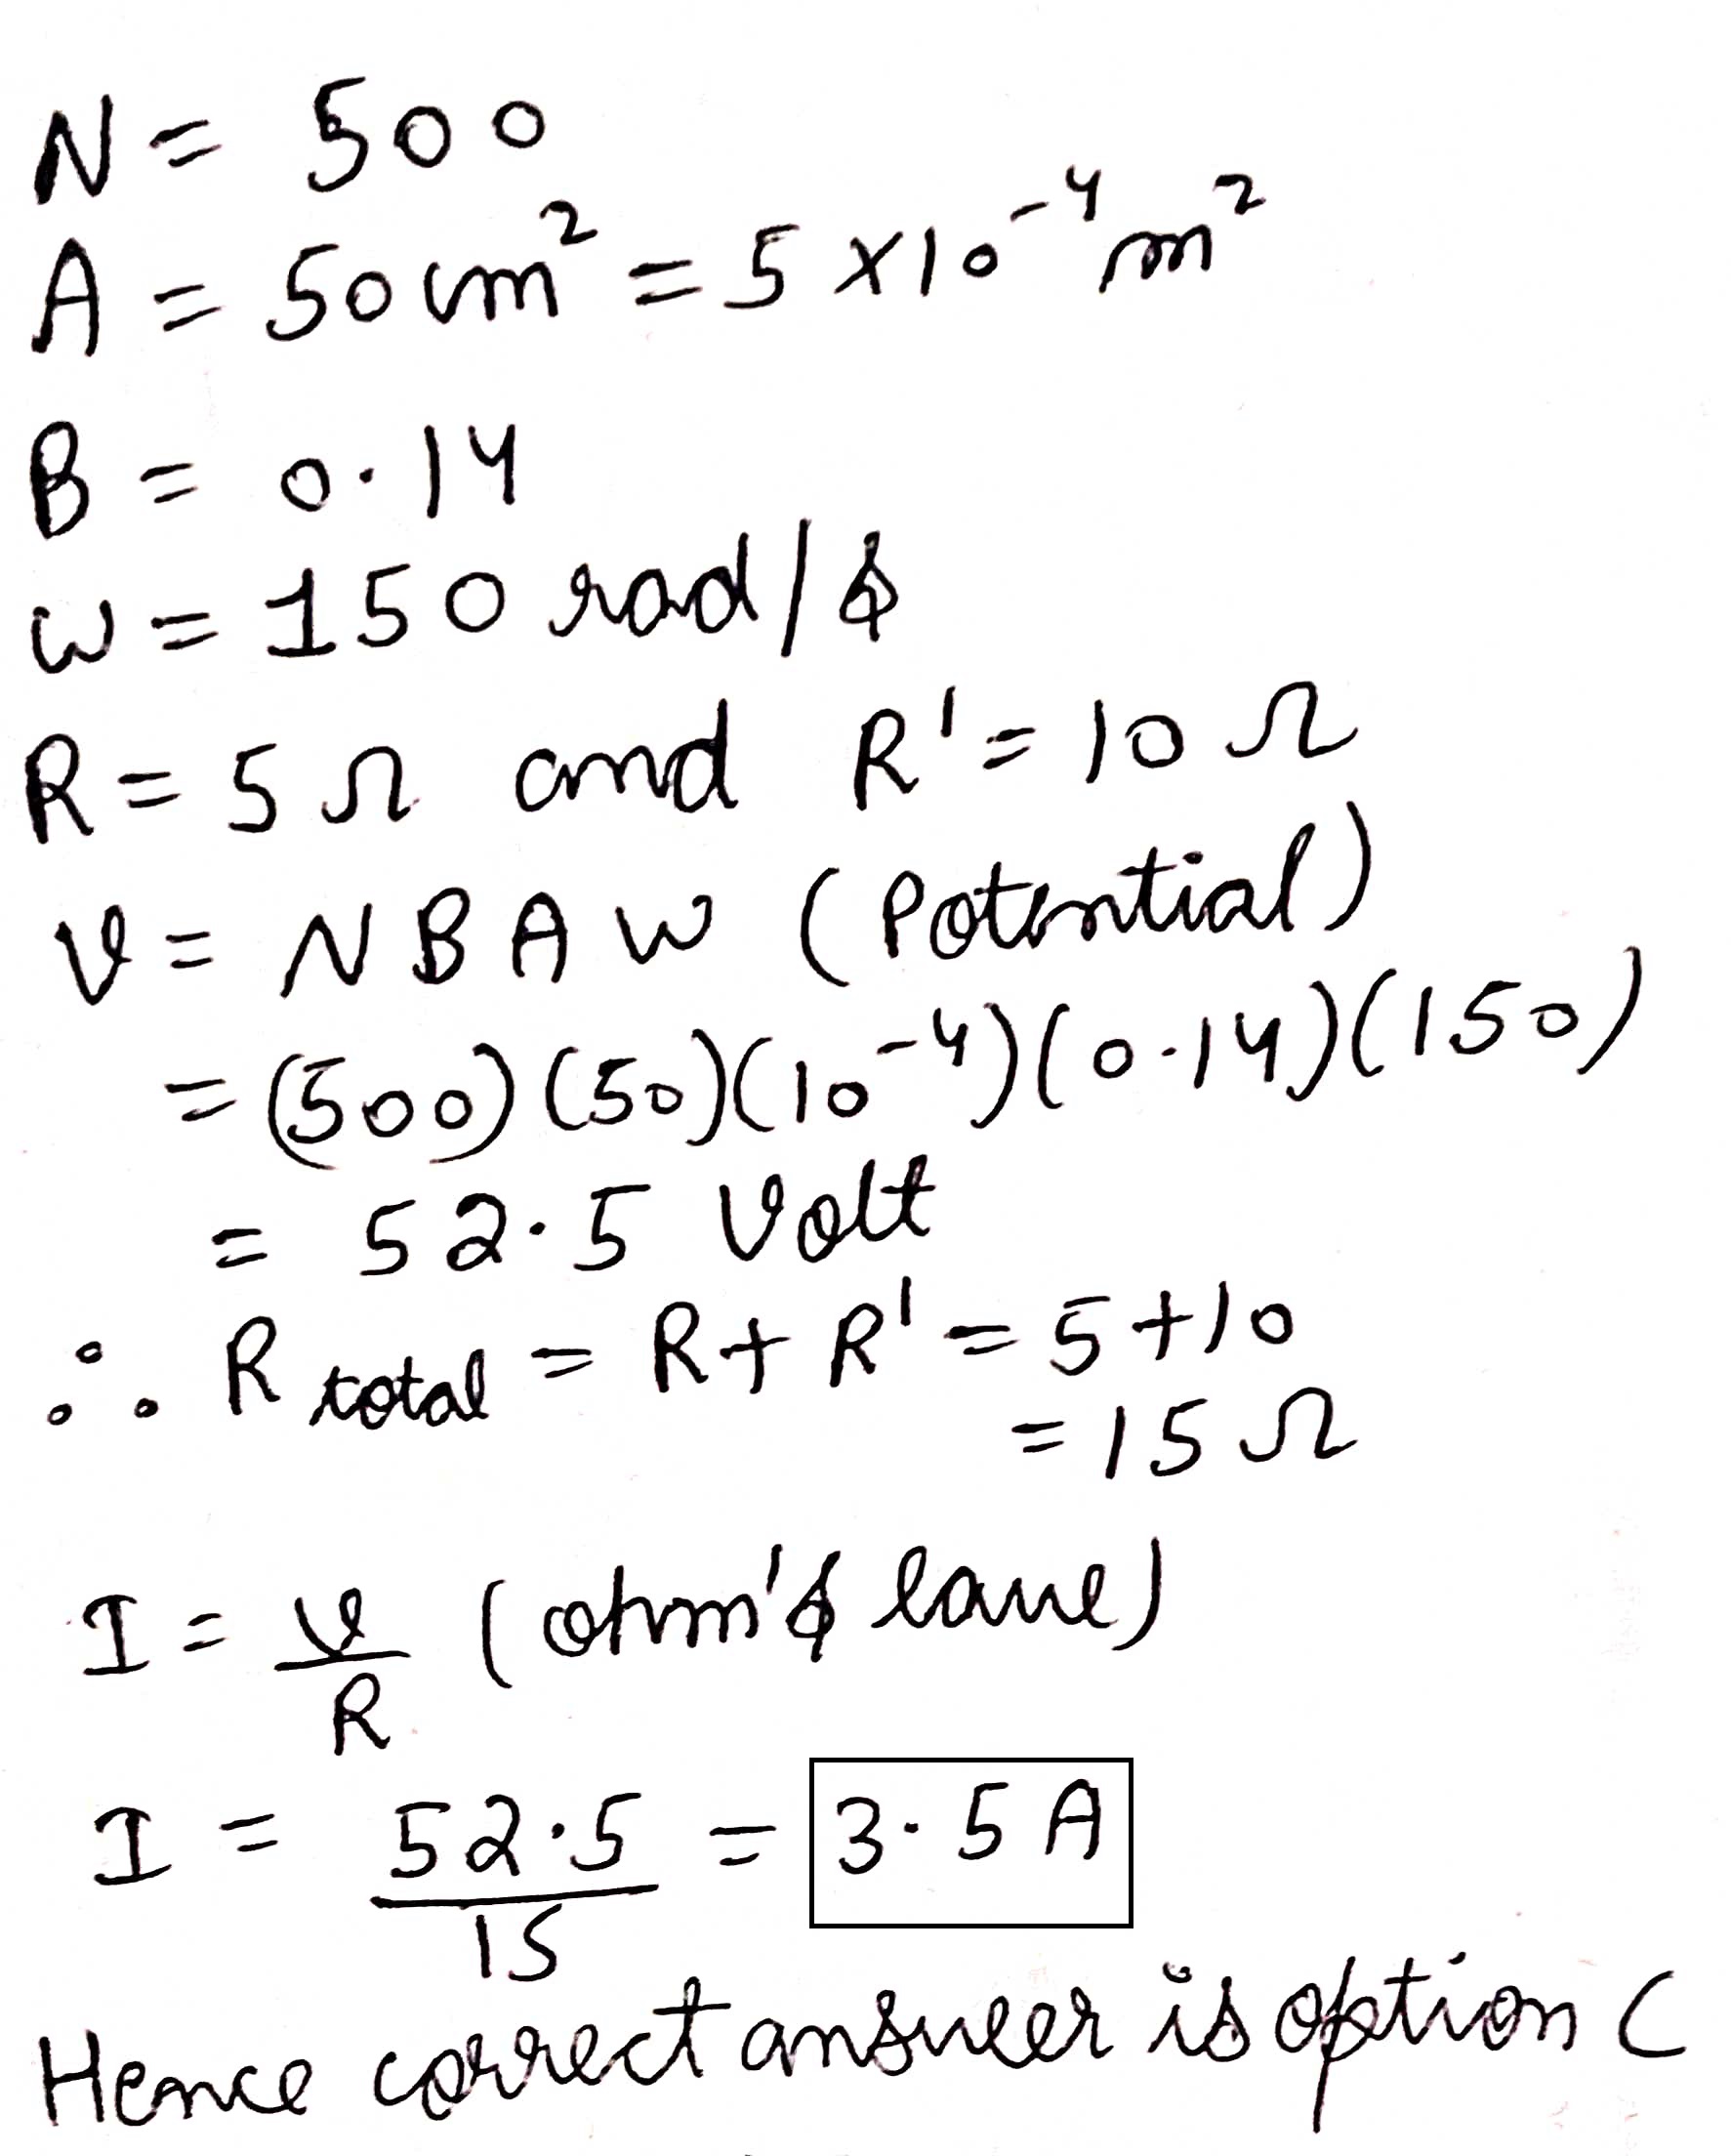 N = 500
A = 50 cm² = 5 x 10⁻⁴ m²
B = 0.14
W = 150 rad/s
R = 5 Ω and R' = 10 Ω
V = N B A W (Potential)
= (500) (50) (10⁻⁴) (0.14) (150)
= 52.5 Volt
∴ R total = R + R' = 5 + 10
= 15 Ω
I = V/R (ohm's lawe)
I = 52.5/15 = 3.5 A
Hence correct answeer is option C